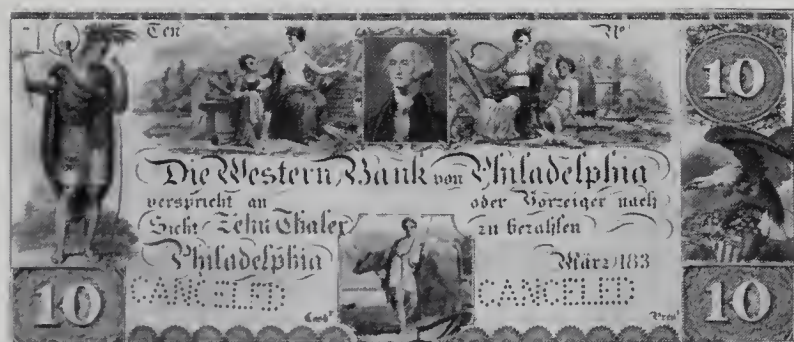 10 Ten No 10
Die Western Bank von Philadelphia
verspricht an oder Vorzeiger nach
Sicht Zehn Thaler zu bezahlen
Philadelphia März 183
10 CANCELED CANCELED 10
Cash^r Pres^t